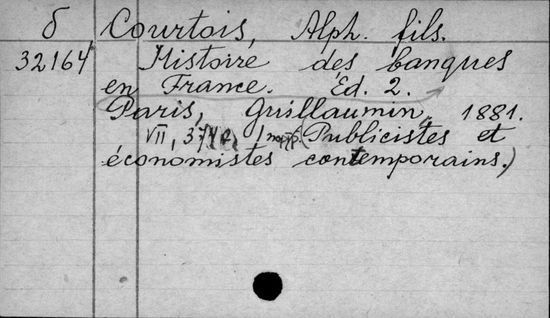 б Courtois, Alph. fils.
32164 Histoire des banques
en France. Ed. 2.
Paris, Guillaumin, 1881.
VII, 374 (Publicistes et
économistes contemporains.)